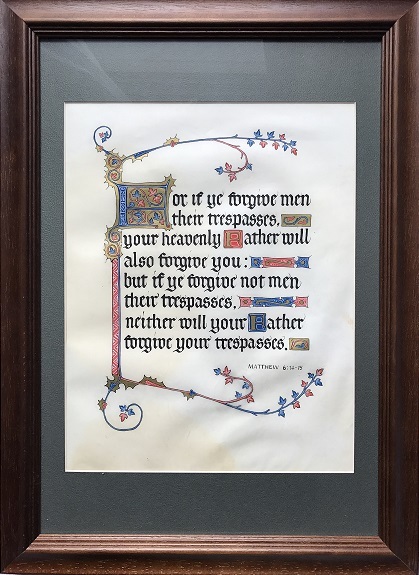 For if ye forgive men
their trespasses,
your heavenly Father will
also forgive you:
but if ye forgive not men
their trespasses,
neither will your Father
forgive your trespasses.
MATTHEW 6:14-15